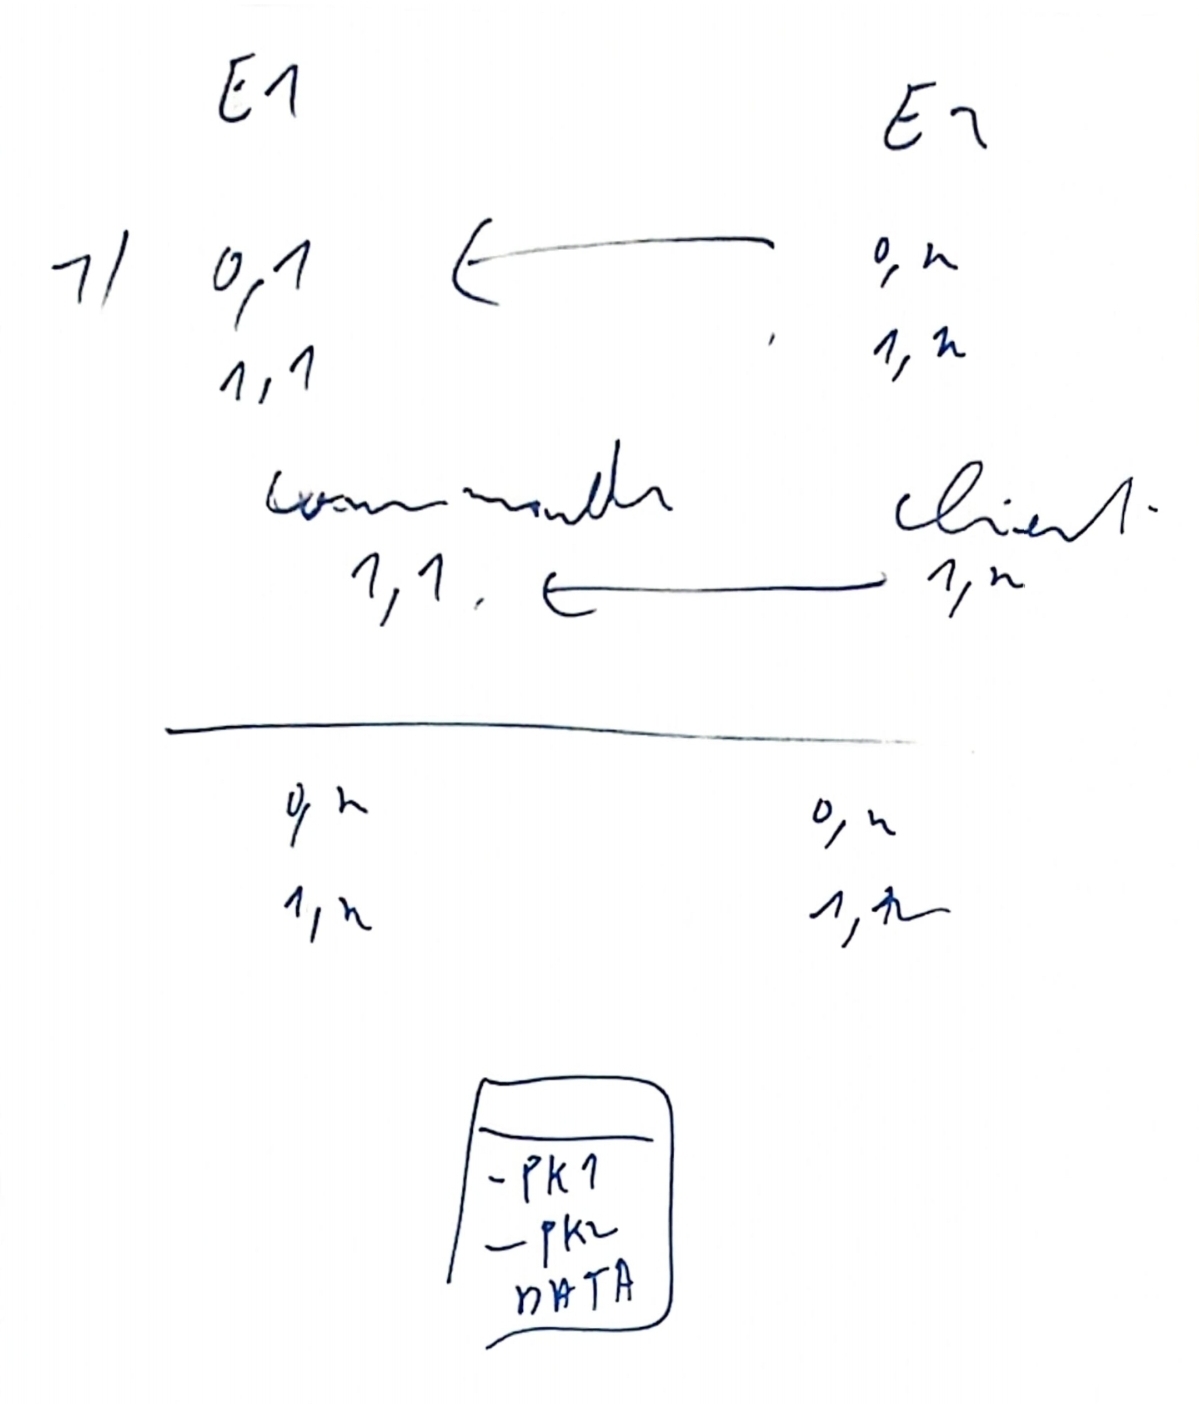 E1 E2
1/ 0,1 0,n
1,1 1,n
commande client
1,1 1,n
0,n 0,n
1,n 1,n
- PK1
- PK2
DATA